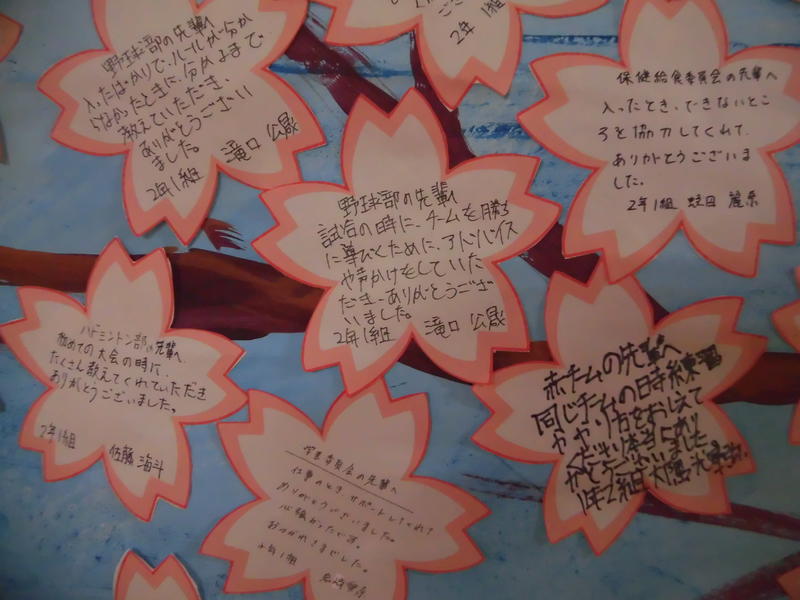 野球部の先輩へ
入ったばかりで、ルールが分か
らなかったときに、分かるまで
教えていただき、
ありがとうござい
ました。
2年1組 滝口 公晟
2年1組
保健給食委員会の先輩へ
入ったとき、できないとこ
ろを協力してくれて、
ありがとうございま
した。
2年1組
野球部の先輩へ
試合の時に、チームを勝ち
に導びくために、アドバイス
や声かけをしていた
だき、ありがとうござ
いました。
2年1組 滝口 公晟
バドミントン部の先輩へ
初めての大会の時に、
たくさん教えてくれていただき
ありがとうございました。
2年1組 佐藤 海斗
赤チームの先輩へ
同じチームの時練習
やり方をおしえて
くださり本当にあり
がとうございました
1年2組
委員会の先輩へ
仕事のとき、サポートしてくれて
ありがとうございました。
心強かったです。
おつかれさまでした。
1組